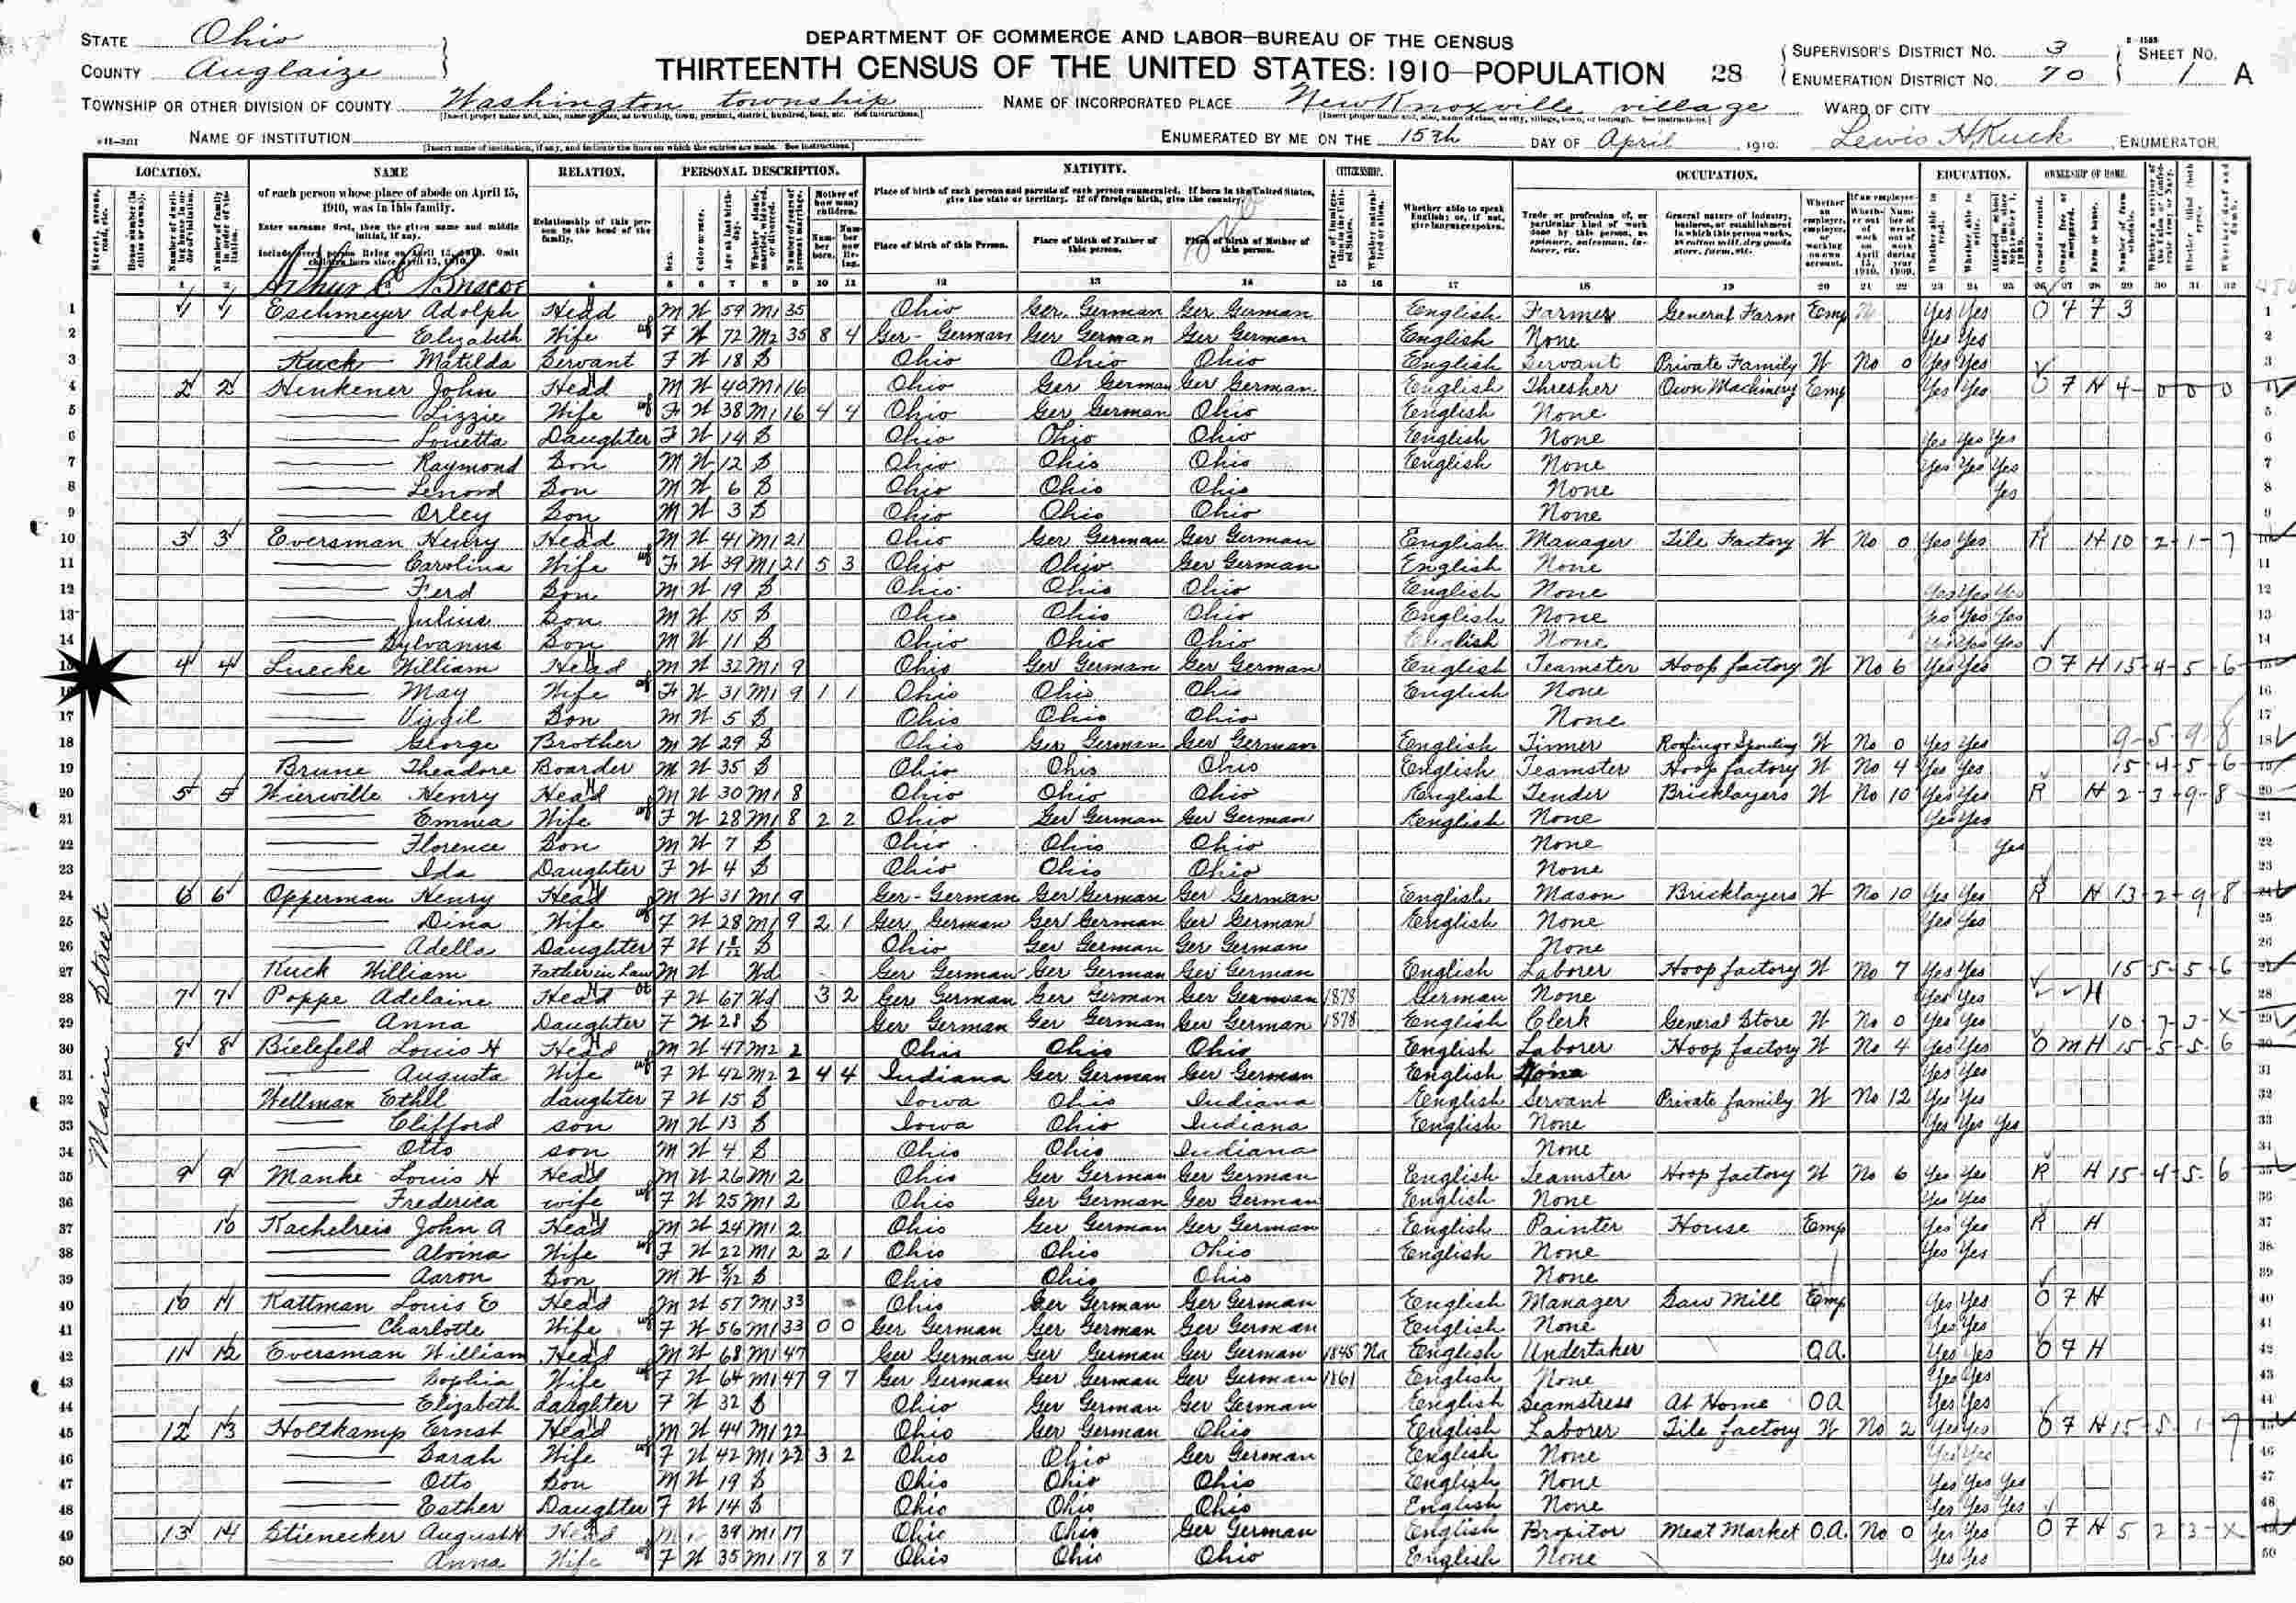 STATE Ohio
COUNTY Auglaize
DEPARTMENT OF COMMERCE AND LABOR—BUREAU OF THE CENSUS
THIRTEENTH CENSUS OF THE UNITED STATES: 1910—POPULATION 28
SUPERVISOR'S DISTRICT NO. 3 SHEET NO.
ENUMERATION DISTRICT NO. 70 1 A
TOWNSHIP OR OTHER DIVISION OF COUNTY Washington township NAME OF INCORPORATED PLACE New Knoxville village WARD OF CITY
NAME OF INSTITUTION ENUMERATED BY ME ON THE 15th DAY OF April, 1910. Lewis H. Kuck, ENUMERATOR
LOCATION. NAME RELATION. PERSONAL DESCRIPTION. NATIVITY. CITIZENSHIP. OCCUPATION. EDUCATION. OWNERSHIP OF HOME.
of each person whose place of abode on April 15, 1910, was in this family.
Enter surname first, then the given name and middle initial, if any.
Include every person living on April 15, 1910. Omit children born since April 15, 1910.
Relationship of this person to the head of the family.
Place of birth of each person and parents of each person enumerated. If born in the United States, give the state or territory. If of foreign birth, give the country.
Place of birth of this Person. Place of birth of Father of this person. Place of birth of Mother of this person.
Whether able to speak English; or, if not, give language spoken.
Trade or profession of, or particular kind of work done by this person, as spinner, salesman, laborer, etc.
General nature of industry, business, or establishment in which this person works, as cotton mill, dry goods store, farm, etc.
Arthur C Briscoe
Main Street
1 1 1 Eschmeyer Adolph Head M W 59 M1 35 Ohio Ger German Ger German English Farmer General Farm Emp Yes Yes O F F 3
2 Elizabeth Wife F W 72 M2 35 8 4 Ger-German Ger German Ger German English None Yes Yes
3 Kuck Matilda Servant F W 18 S Ohio Ohio Ohio English Servant Private Family W No 0 Yes Yes
4 2 2 Henkener John Head M W 40 M1 16 Ohio Ger German Ger German English Thresher Own Machinery Emp Yes Yes O F H 4-0 0 0
5 Lizzie Wife F W 38 M1 16 4 4 Ohio Ger German Ohio English None
6 Louetta Daughter F W 14 S Ohio Ohio Ohio English None Yes Yes Yes
7 Raymond Son M W 12 S Ohio Ohio Ohio English None Yes Yes Yes
8 Lenord Son M W 6 S Ohio Ohio Ohio None Yes
9 Orley Son M W 3 S Ohio Ohio Ohio None
10 3 3 Eversman Henry Head M W 41 M1 21 Ohio Ger German Ger German English Manager Tile Factory W No 0 Yes Yes R H 10-2-1-7
11 Carolina Wife F W 39 M1 21 5 3 Ohio Ohio Ger German English None
12 Ferd Son M W 19 S Ohio Ohio Ohio English None Yes Yes Yes
13 Julius Son M W 15 S Ohio Ohio Ohio English None Yes Yes Yes
14 Sylvanus Son M W 11 S Ohio Ohio Ohio English None Yes Yes Yes
15 4 4 Luecke William Head M W 32 M1 9 Ohio Ger German Ger German English Teamster Hoop factory W No 6 Yes Yes O F H 15-4-5-6
16 May Wife F W 31 M1 9 1 1 Ohio Ohio Ohio English None
17 Virgil Son M W 5 S Ohio Ohio Ohio None
18 George Brother M W 29 S Ohio Ger German Ger German English Tinner Roofing & Spouting W No 0 Yes Yes 9-5-9-8
19 Brune Theadore Boarder M W 35 S Ohio Ohio Ohio English Teamster Hoop factory W No 4 Yes Yes 15-4-5-6
20 5 5 Wierwille Henry Head M W 30 M1 8 Ohio Ohio Ohio English Tender Bricklayers W No 10 Yes Yes R H 2-3-9-8
21 Emma Wife F W 28 M1 8 2 2 Ohio Ger German Ger German English None Yes Yes
22 Florence Son M W 7 S Ohio Ohio Ohio None Yes
23 Ida Daughter F W 4 S Ohio Ohio Ohio None
24 6 6 Opperman Henry Head M W 31 M1 9 Ger-German Ger German Ger German English Mason Bricklayers W No 10 Yes Yes R H 13-2-9-8
25 Dina Wife F W 28 M1 9 2 1 Ger German Ger German Ger German English None Yes Yes
26 Adella Daughter F W 1 8/12 S Ohio Ger German Ger German None
27 Kuck William Father in Law M W Wd Ger German Ger German Ger German English Laborer Hoop factory W No 7 Yes Yes 15-5-5-6
28 7 7 Poppe Adelaine Head F W 67 Wd 3 2 Ger German Ger German Ger German 1878 German None Yes Yes H
29 Anna Daughter F W 28 S Ger German Ger German Ger German 1878 English Clerk General Store W No 0 Yes Yes 10-7-3-X
30 8 8 Bielefeld Louis H Head M W 47 M2 2 Ohio Ohio Ohio English Laborer Hoop factory W No 4 Yes Yes O M H 15-5-5-6
31 Augusta Wife F W 42 M2 2 4 4 Indiana Ger German Ger German English None Yes Yes
32 Wellman Ethel daughter F W 15 S Iowa Ohio Indiana English Servant Private family W No 12 Yes Yes
33 Clifford son M W 13 S Iowa Ohio Indiana English None Yes Yes Yes
34 Otto son M W 4 S Ohio Ohio Indiana None
35 9 9 Manke Louis H Head M W 26 M1 2 Ohio Ger German Ger German English Teamster Hoop factory W No 6 Yes Yes R H 15-4-5-6
36 Frederica wife F W 25 M1 2 Ohio Ger German Ger German English None Yes Yes
37 10 Kachelreis John A Head M W 24 M1 2 Ohio Ger German Ger German English Painter House Emp Yes Yes R H
38 Alvina Wife F W 22 M1 2 2 1 Ohio Ohio Ohio English None Yes Yes
39 Aaron Son M W 5/12 S Ohio Ohio Ohio None
40 10 11 Kattman Louis E Head M W 57 M1 33 Ohio Ger German Ger German English Manager Saw Mill Emp Yes Yes O F H
41 Charlotte Wife F W 56 M1 33 0 0 Ger German Ger German Ger German English None Yes Yes
42 11 12 Eversman William Head M W 68 M1 47 Ger German Ger German Ger German 1845 Na English Undertaker O.A. Yes Yes O F H
43 Sophia Wife F W 64 M1 47 9 7 Ger German Ger German Ger German 1861 English None Yes Yes
44 Elizabeth daughter F W 32 S Ohio Ger German Ger German English Seamstress At Home OA Yes Yes
45 12 13 Holtkamp Ernst Head M W 44 M1 22 Ohio Ger German Ohio English Laborer Tile factory W No 2 Yes Yes O F H 15-5-1-7
46 Sarah Wife F W 42 M1 22 3 2 Ohio Ohio Ger German English None Yes Yes
47 Otto Son M W 19 S Ohio Ohio Ohio English None Yes Yes Yes
48 Esther Daughter F W 14 S Ohio Ohio Ohio English None Yes Yes Yes
49 13 14 Stienecker August H Head M 39 M1 17 Ohio Ohio Ger German English Propitor Meat Market O.A. No 0 Yes Yes O F H 5 2 3-X
50 Anna Wife F W 35 M1 17 8 7 Ohio Ohio Ohio English None Yes Yes